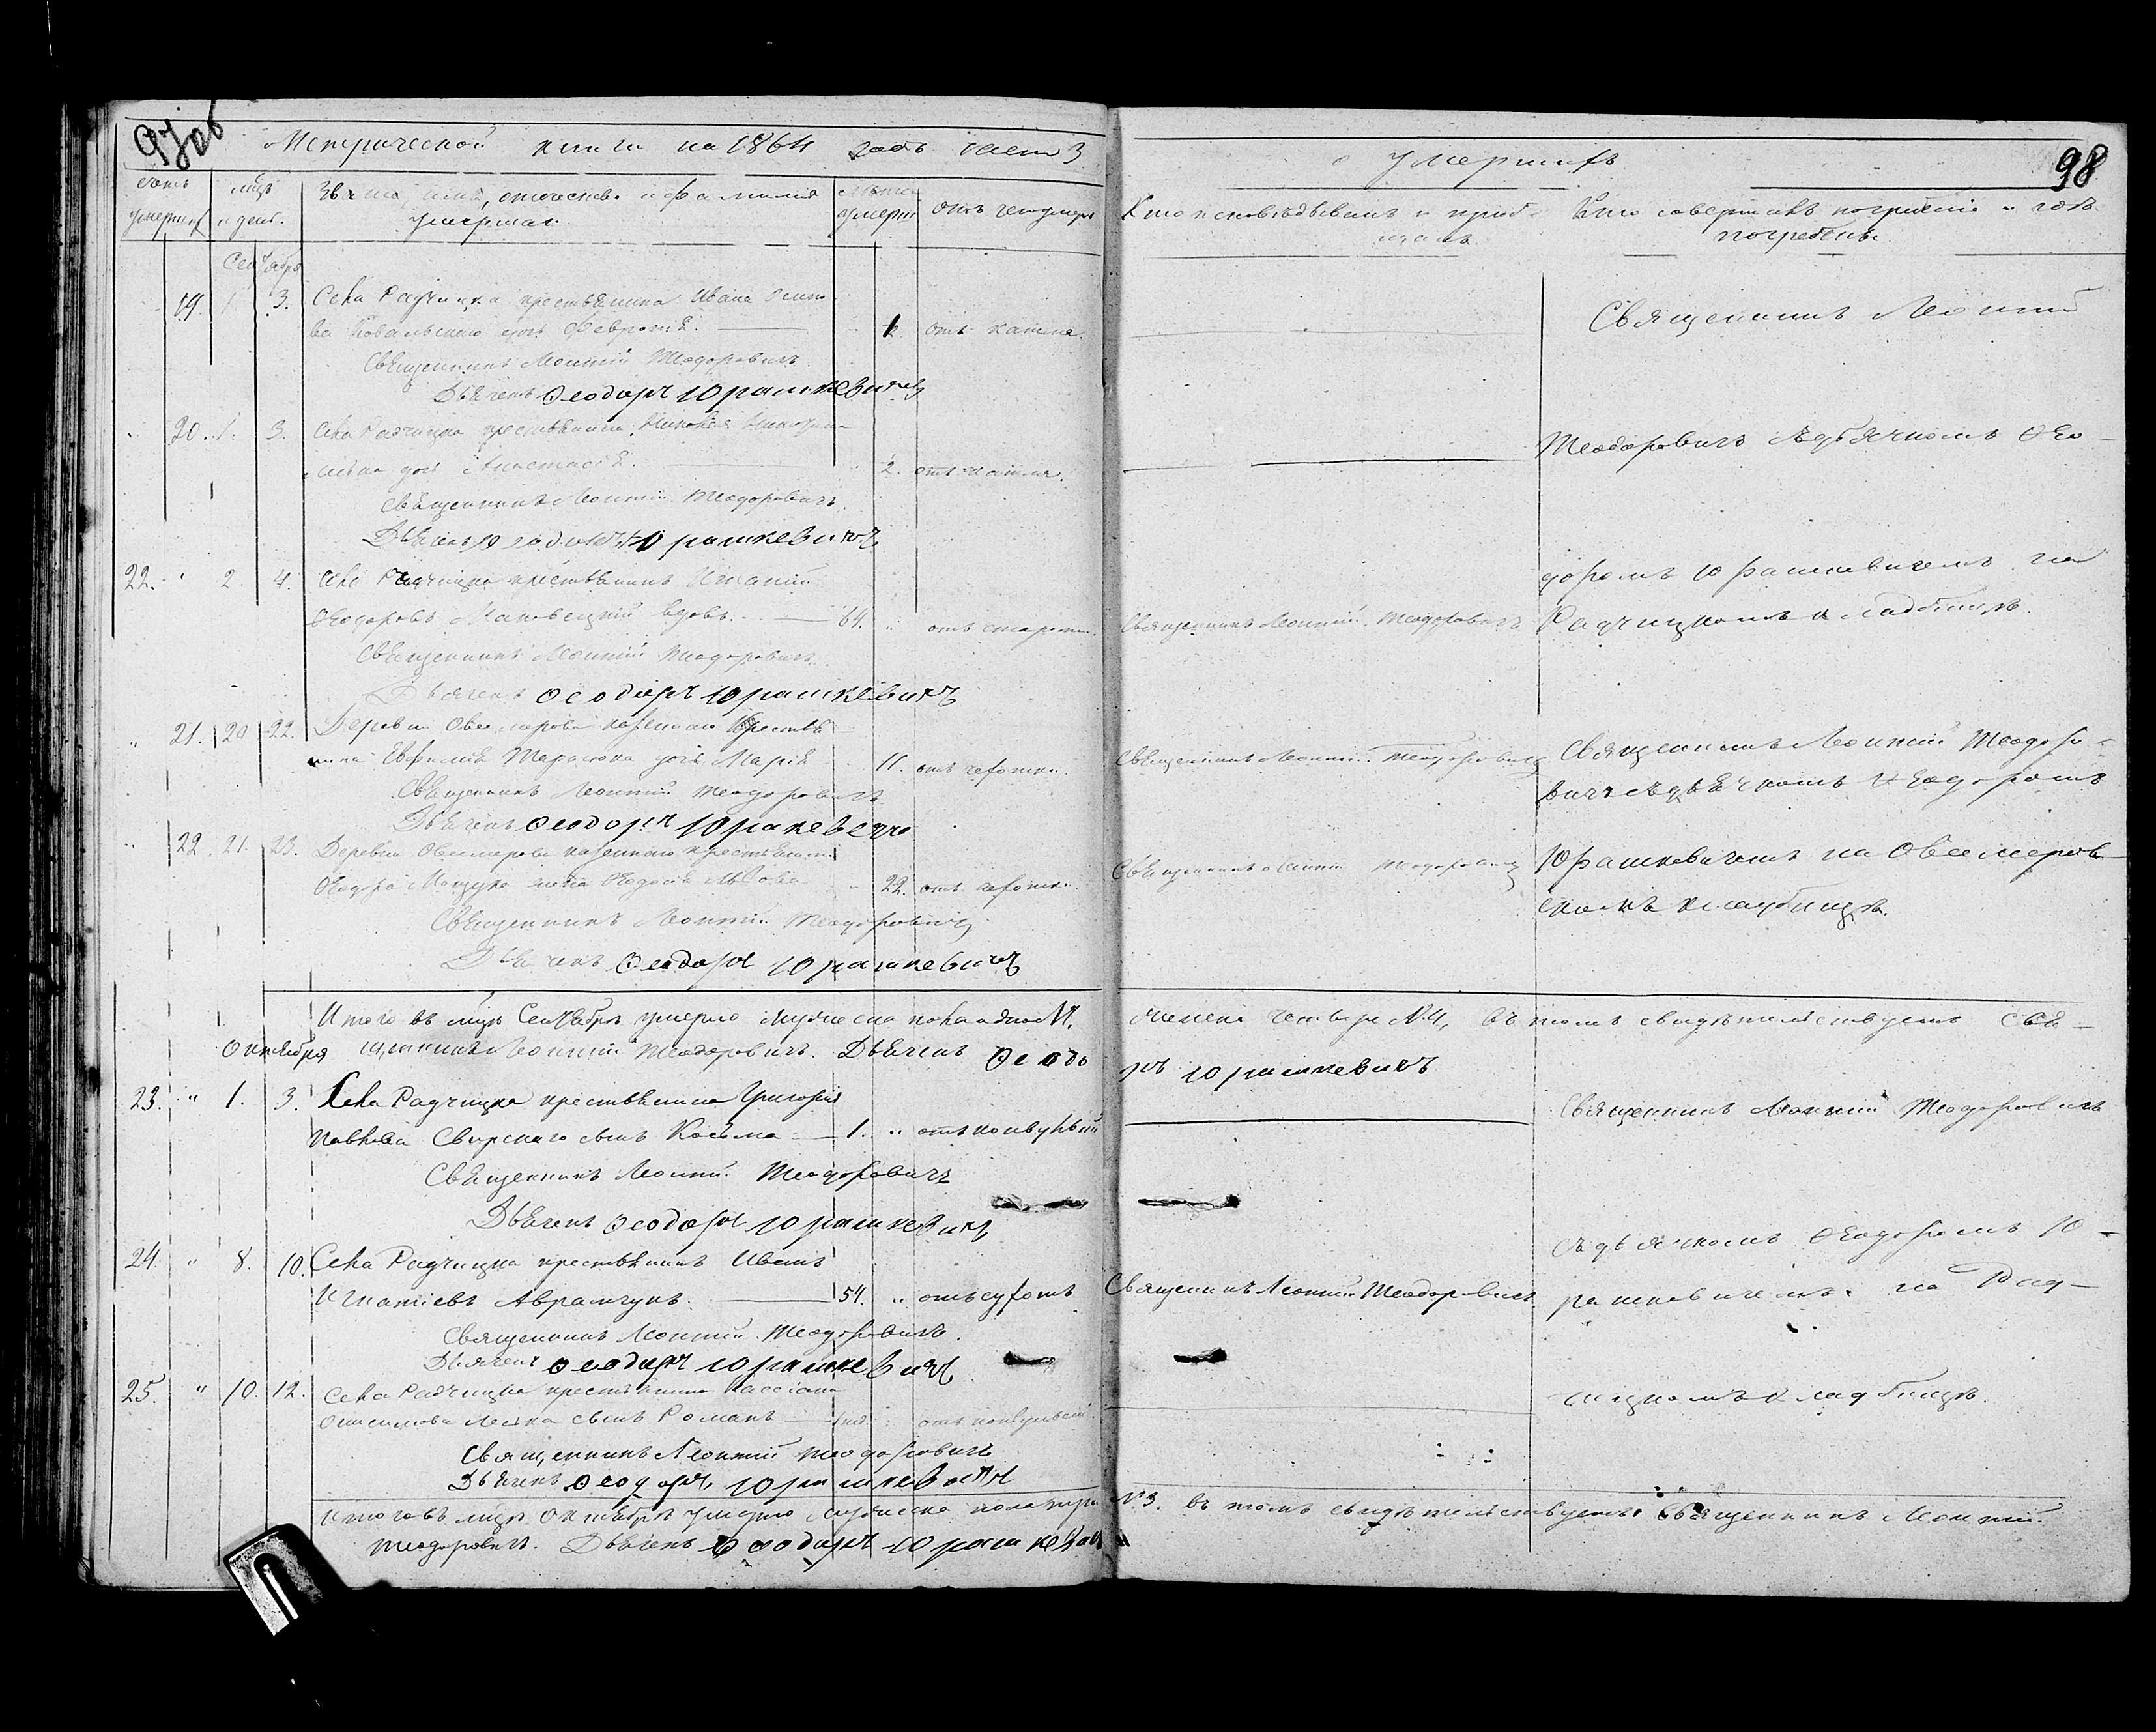 97 об
Метрической книги на 1864 годъ часть 3
о умершихъ
98
Счетъ умершихъ
Мѣсяцъ и день.
Званіе, имя, отчество и фамилія умершаго.
Лѣта умерш
отъ чего умеръ
Кто исповѣдывалъ и пріобщалъ.
Кто совершалъ погребеніе и гдѣ погребены.
Сентября
19. 1. 3. Села Радчицка крестьянина Ивана Осипо
ва Ковальскаго дочь Февронія. отъ кашля.
Священникъ Леонтій Теодоровичъ
Дьячекъ Ѳеодоръ Юрашкевичъ
20. 1. 3. Села Радчицка крестьянина
дочь Анастасія. 2. отъ кашля.
Священникъ Леонтій Теодоровичъ.
Дьячекъ Ѳеодоръ Юрашкевичъ
22. " 2. 4. Села Радчицка крестьянинъ Игнатій
Ѳеодоровъ Маковецкій вдовъ. 64. " отъ старости. Священникъ Леонтій Теодоровичъ
Священникъ Леонтій Теодоровичъ.
Дьячекъ Ѳеодоръ Юрашкевичъ
Священникъ Леонтій
Теодоровичъ съ дьячкомъ Ѳео-
доромъ Юрашкевичемъ на
Радчицкомъ кладбищѣ.
" 21. 20 22. Деревни казеннаго крестья
нина Евфимія Тарасюка дочь Марія 11. отъ чахотки. Священникъ Леонтій Теодоровичъ
Священникъ Леонтій Теодоровичъ
Дьячекъ Ѳеодоръ Юрашкевичъ
" 22. 21. 23. Деревни казеннаго крестьянина
Ѳеодора жена Ѳеодосія 22. отъ чахотки. Священникъ Леонтій Теодоровичъ
Священникъ Леонтій Теодоровичъ
Дьячекъ Ѳеодоръ Юрашкевичъ
Священникъ Леонтій Теодоро-
вичъ съ дьячкомъ Ѳеодоромъ
Юрашкевичемъ на
скомъ кладбищѣ.
Итого въ мцѣ Сентябрѣ умерло мужеска пола одно №1, женска четверо №4, въ томъ свидѣтельствуемъ Свя-
щенникъ Леонтій Теодоровичъ. Дьячекъ Ѳеодоръ Юрашкевичъ
Октября
23. " 1. 3. Села Радчицка крестьянина Григорія
Павлова Свирскаго сынъ Косьма 1. " отъ конвульсій
Священникъ Леонтій Теодоровичъ
Дьячекъ Ѳеодоръ Юрашкевичъ
24. " 8. 10. Села Радчицка крестьянинъ Иванъ
Игнатіевъ Аврамчукъ. 54. " отъ сухотъ Священникъ Леонтій Теодоровичъ.
Священникъ Леонтій Теодоровичъ.
Дьячекъ Ѳеодоръ Юрашкевичъ
25. " 10. 12. Села Радчицка крестьянина Кассіана
Онисимова сынъ Романъ 1 нед. отъ конвульсій.
Священникъ Леонтій Теодоровичъ
Дьячекъ Ѳеодоръ Юрашкевичъ
Священникъ Леонтій Теодоровичъ
съ дьячкомъ Ѳеодоромъ Ю-
рашкевичемъ на Рад-
чицкомъ кладбищѣ.
Итого въ мцѣ Октябрѣ умерло мужеска пола три №3. въ томъ свидѣтельствуемъ Священникъ Леонтій
Теодоровичъ. Дьячекъ Ѳеодоръ Юрашкевичъ